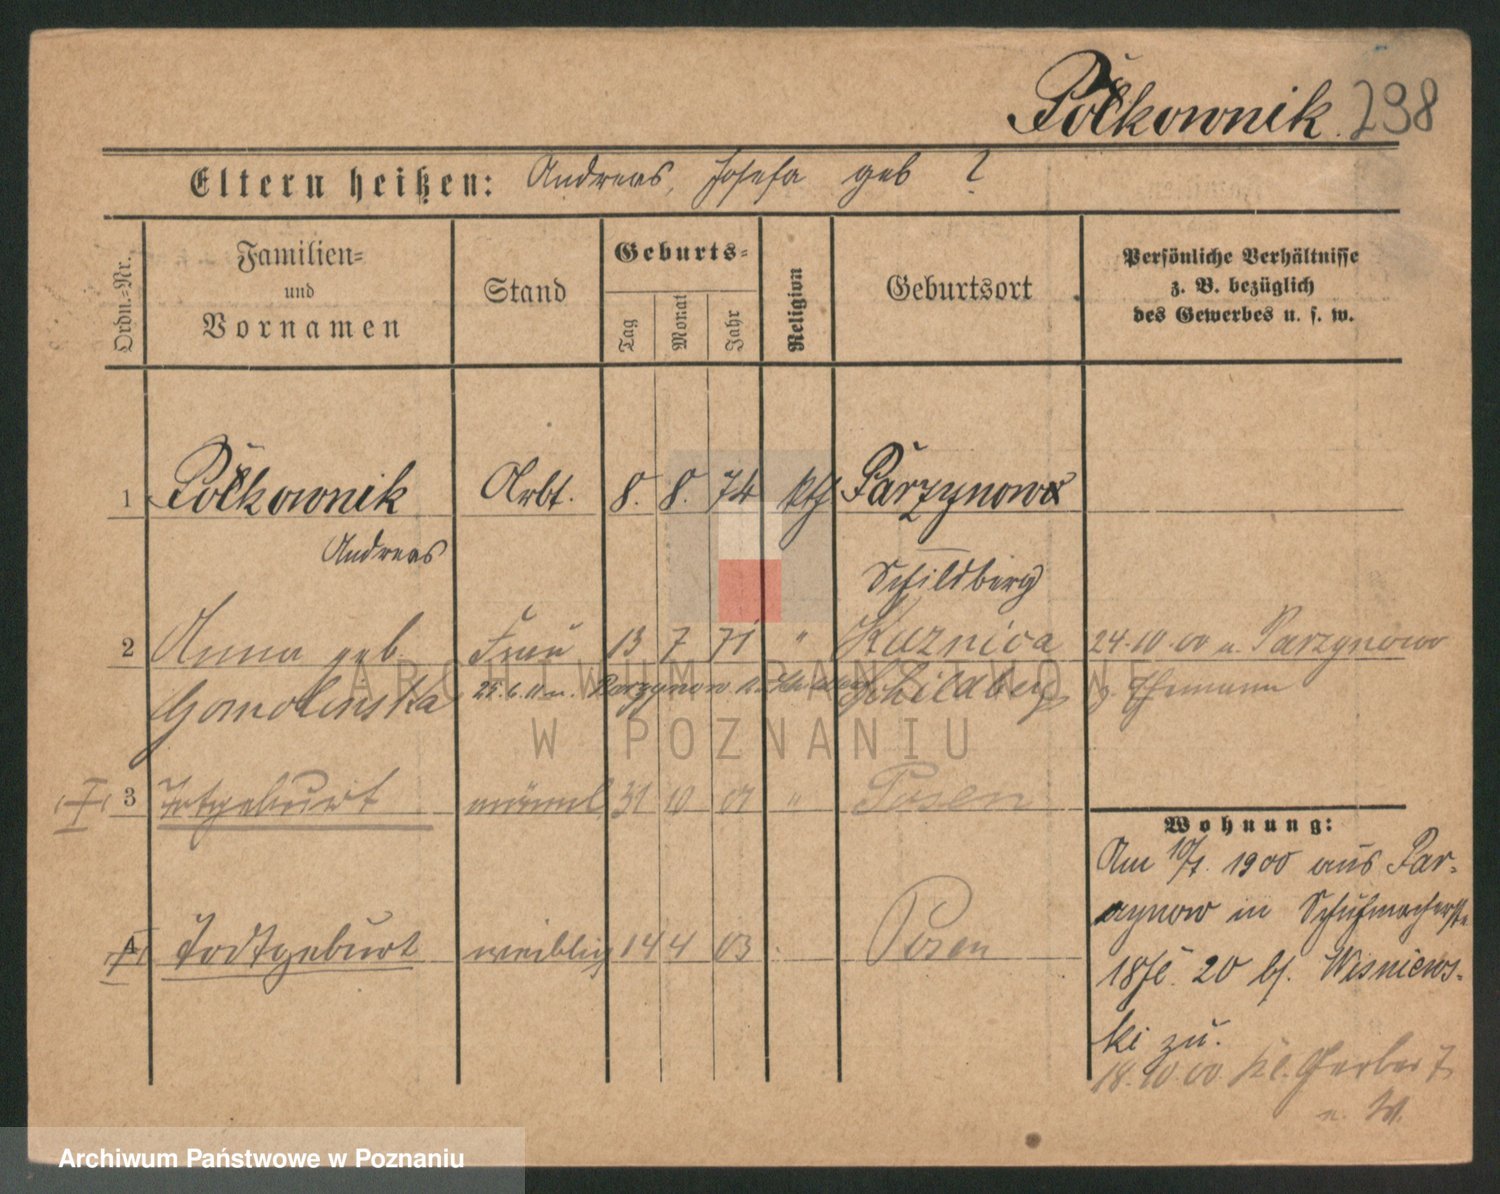 Połkownik. 238
Eltern heißen: Andreas, Josefa geb ?
Ordn.-Nr.
Familien-
und
Vornamen
Stand
Geburts-
Tag
Monat
Jahr
Religion
Geburtsort
Persönliche Verhältnisse
z. B. bezüglich
des Gewerbes u. s. w.
1 Połkownik Arbt. 8. 8. 74 kth Parzynow
Andreas
Schildberg
2 Anna geb. Frau 13 7 71 " Kuznica 24.10.00 n. Parzynowo
Gomolinska Parzynow Schildberg z. Ehemann
3 Totgeburt männl 31 10 01 " Posen
4 Todtgeburt weiblig 14 4 03 Posen
Wohnung:
Am 10/7. 1900 aus Par-
zynow in Schuhmacherstr
18 20 bj. Wisniews-
ki zu.
18.10.00 Kl. Gerber 7
n. W.
ARCHIWUM PAŃSTWOWE
W POZNANIU
Archiwum Państwowe w Poznaniu